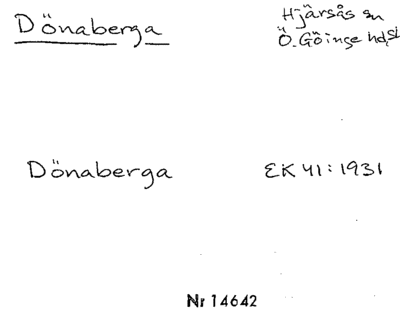 Dönaberga
Hjärsås sn
Ö. Göinge hd,
Dönaberga
EK 41:1931
Nr 14642